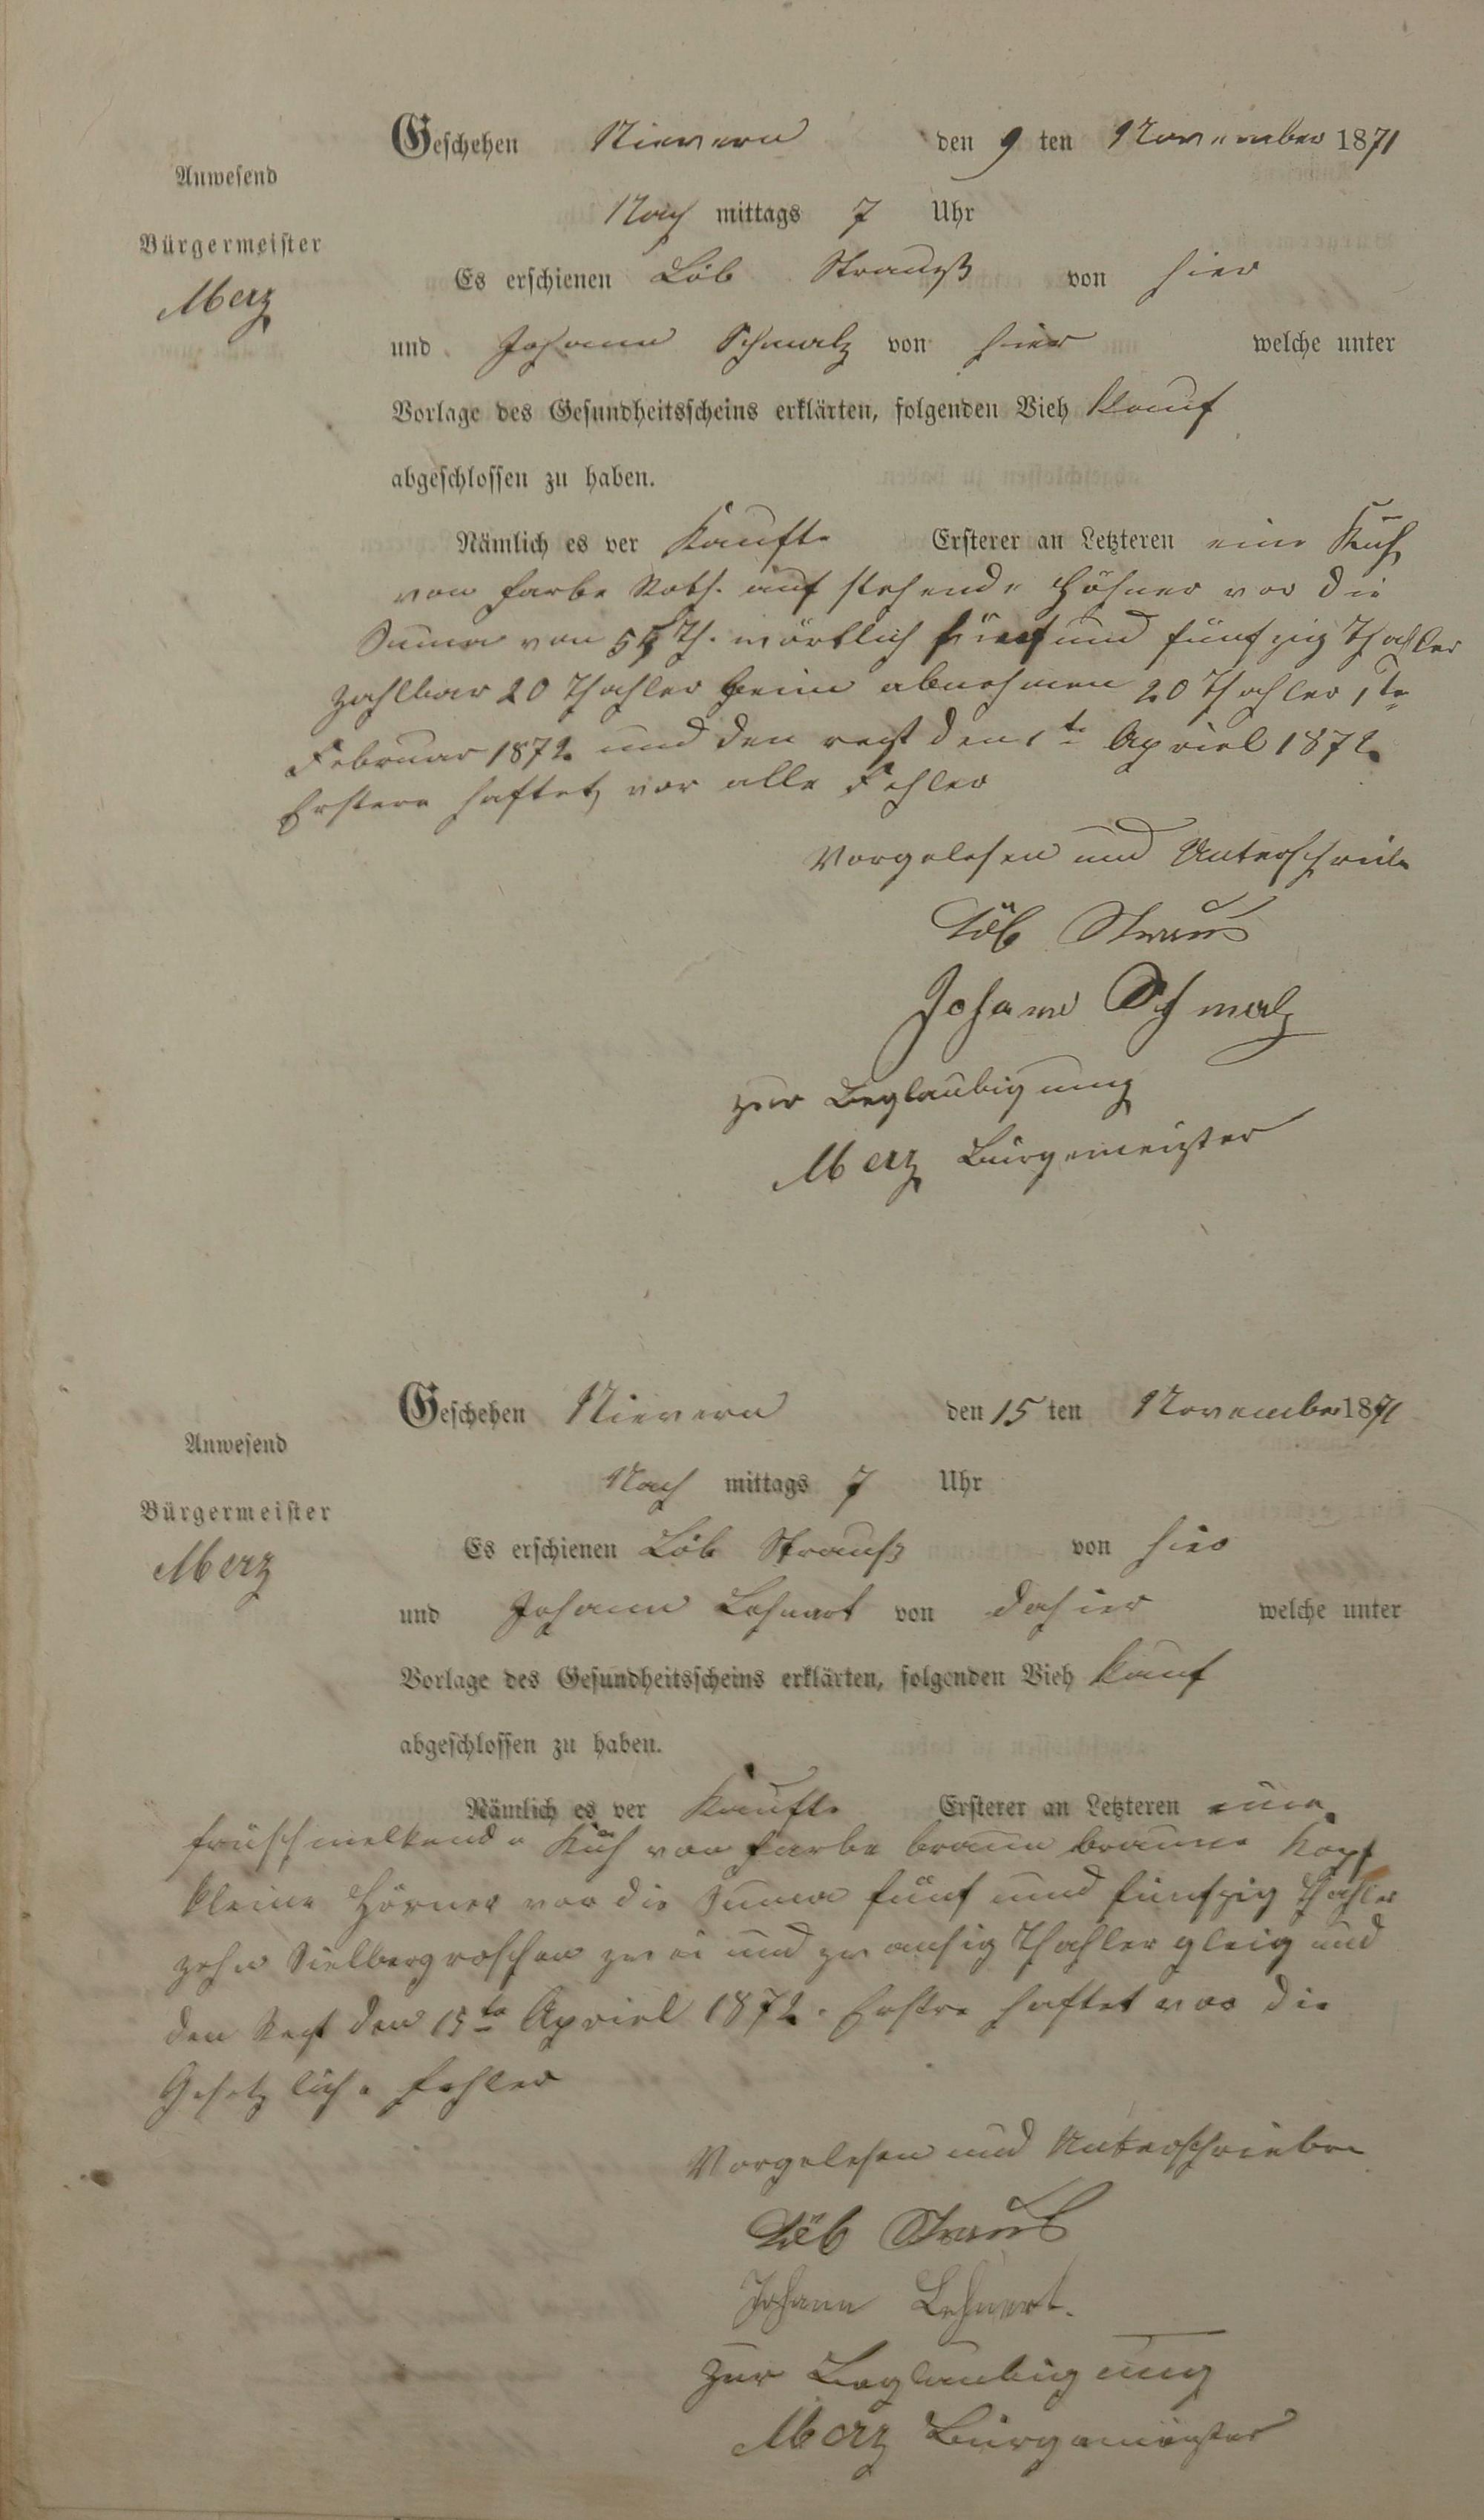 Geschehen Nievern den 9 ten November 1871
Anwesend
Nach mittags 7 Uhr
Bürgermeister
Merz
Es erschienen Löb Strauß von hier
und Johann Schmalz von hier welche unter
Vorlage des Gesundheitsscheins erklärten, folgenden Vieh Kauf
abgeschlossen zu haben.
Nämlich es ver Kaufte Ersterer an Letzteren eine Kuh
von Farbe Roth. auf stehende Höhner vor die
Suma von 55 Th. wörtlich fünf und fünfzig Thahler
zahlbar 20 Thahler beim abnehmen 20 Thahler 1te
Februar 1872 und den rest den 1te Apriel 1872
Erstere haftet vor alle Fehler
Vorgelesen und Unterschrieben
Löb Straus
Johann Schmalz
zur Beglaubigung
Merz Bürgemeister
Geschehen Nievern den 15 ten November 1871
Anwesend
Nach mittags 7 Uhr
Bürgermeister
Merz
Es erschienen Löb Strauß von hier
und Johann Lehnert von dahier welche unter
Vorlage des Gesundheitsscheins erklärten, folgenden Vieh Kauf
abgeschlossen zu haben.
Nämlich es ver Kaufte Ersterer an Letzteren eine
früschmelkende Kuh von Farbe braun braune Kopf
kleine Hörner vor die Suma fünf und fünfzig Thahler
zehn Sielbergroschen zwei und zwansig Thahler gleig und
den Rest den 15te Apriel 1872. Erstre haftet vor die
Gesetzliche Fehler
Vorgelesen und Unterschrieben
Löb Straus
Johann Lehnert.
Zur Beglaubigung
Merz Bürgemeister